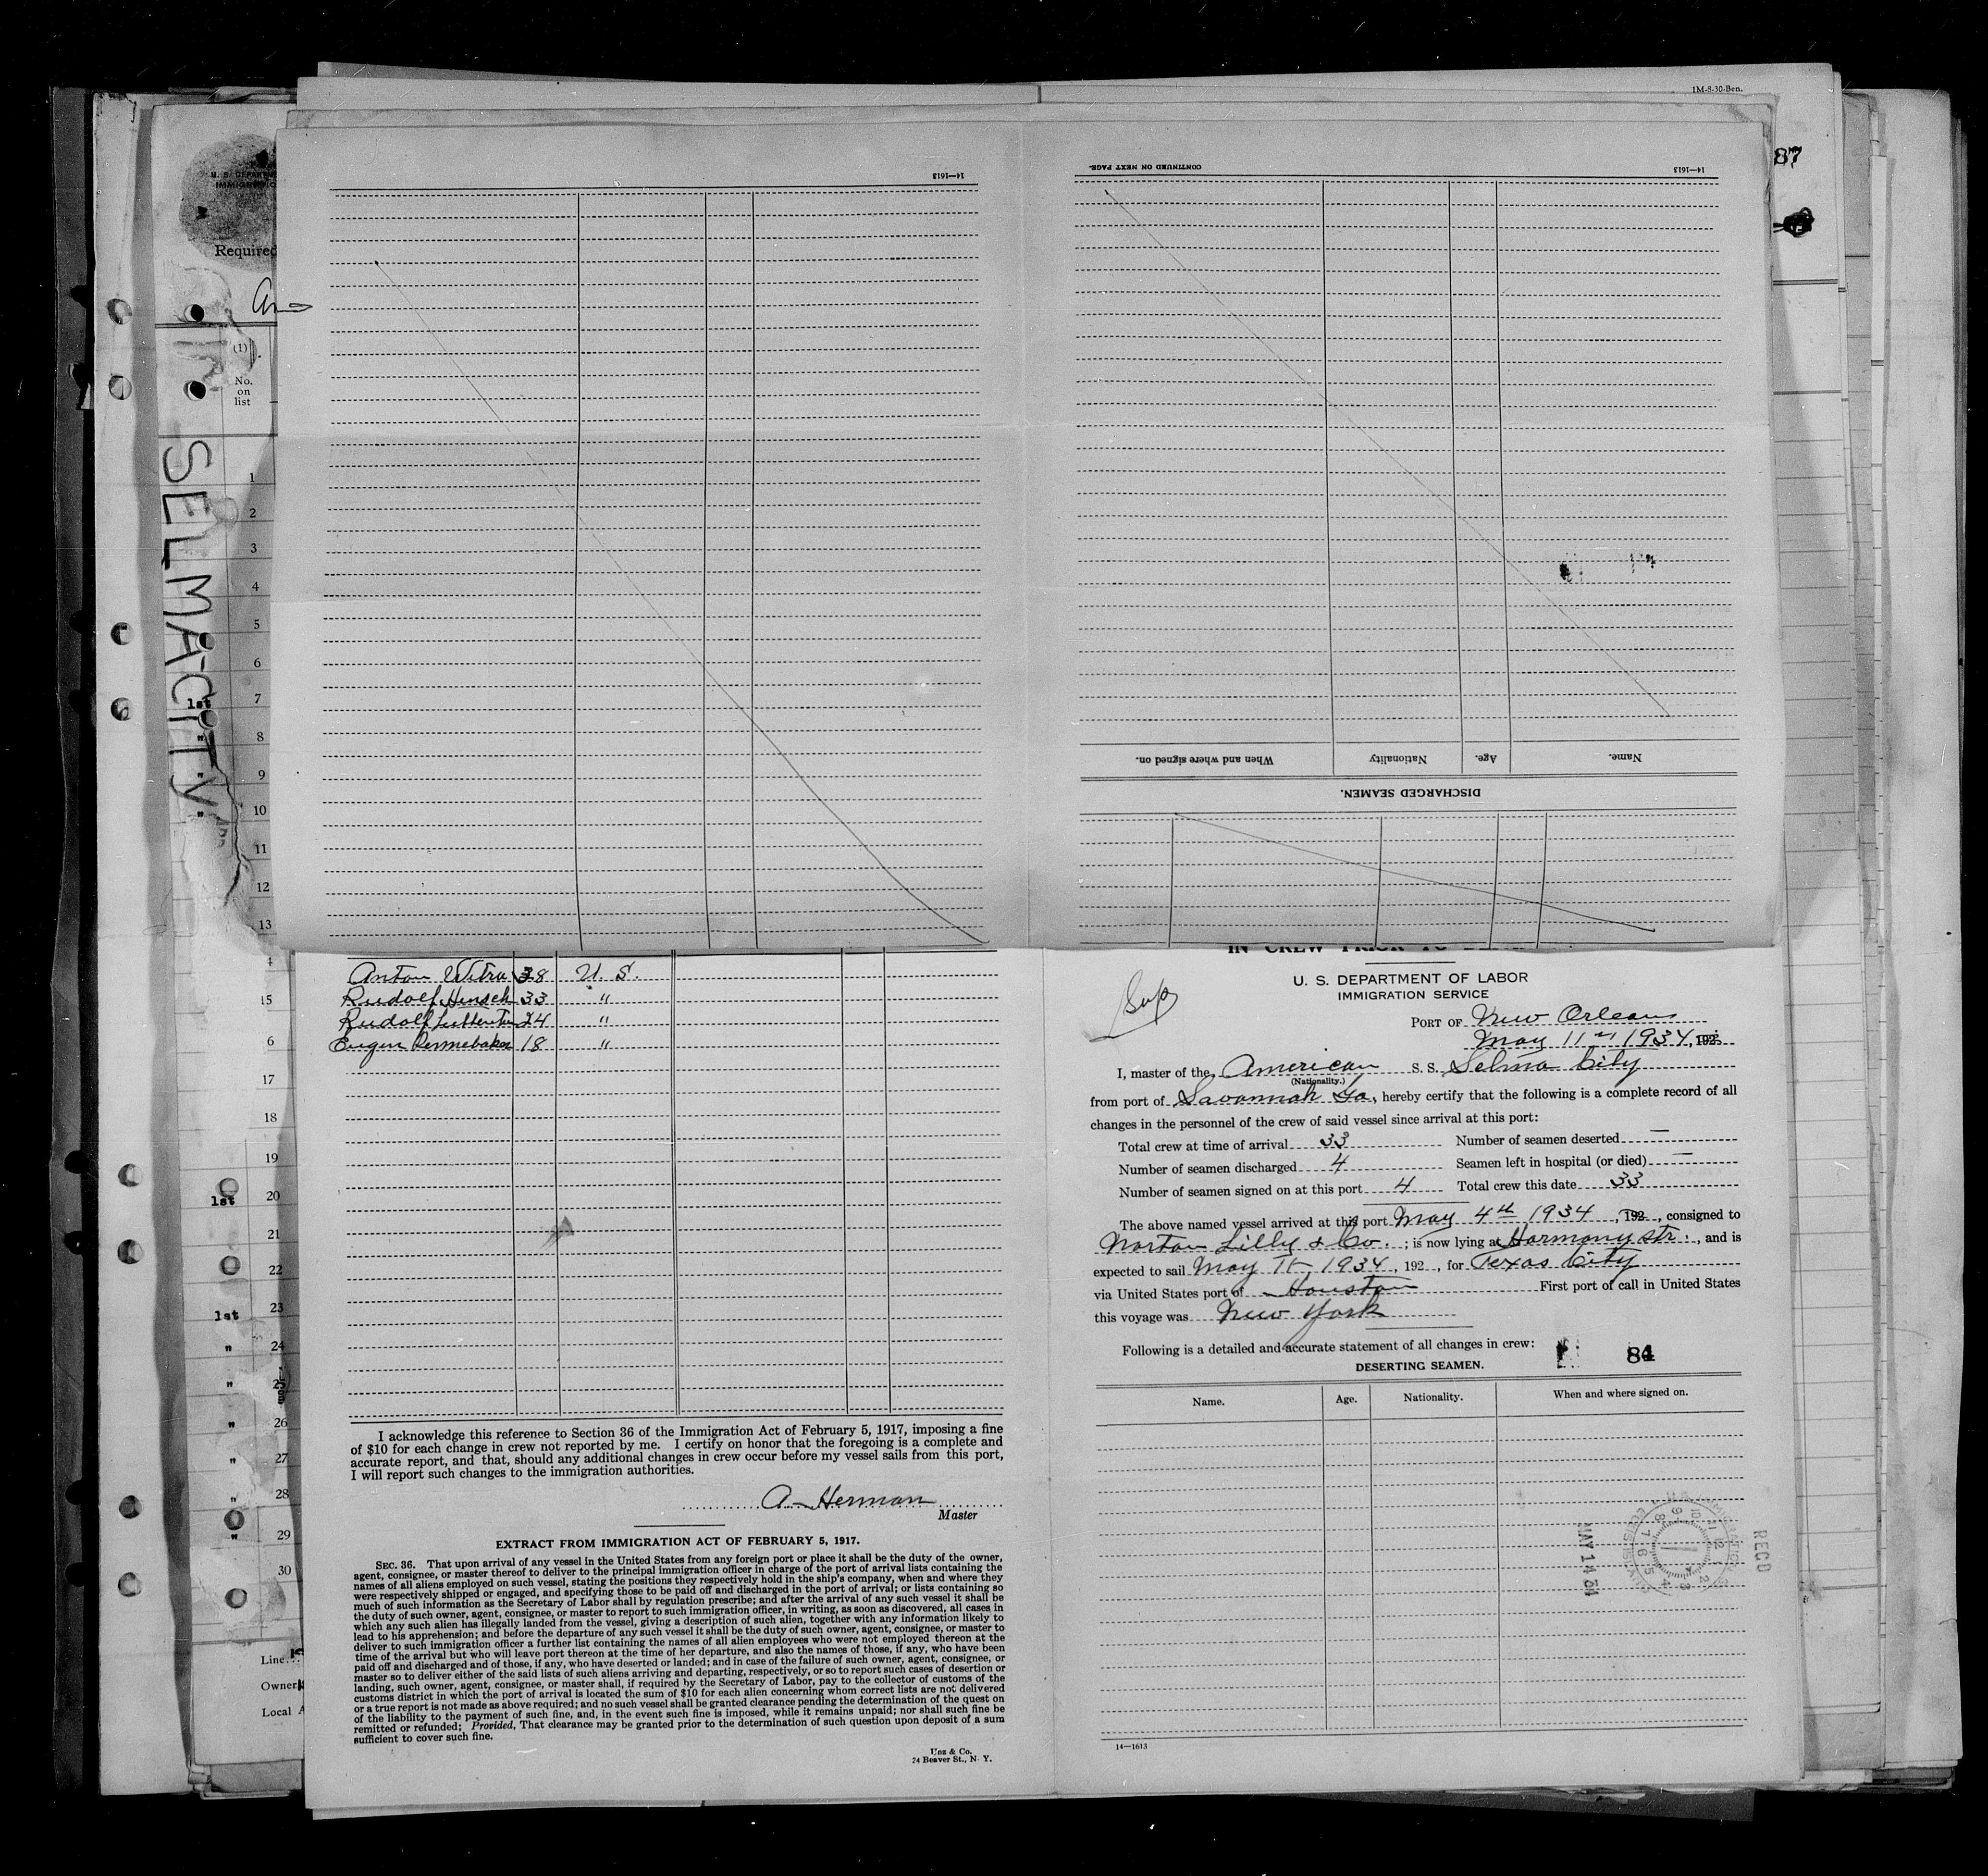 1M-8-30-Ben.
87
U. S. DEPARTM
IMMIGRATIO
Required
(1)
No.
on
list
SELMA-CITY
1
2
3
4
5
6
1st 7
" 8
" 9
" 10
11
12
13
14—1613
CONTINUED ON NEXT PAGE.
14—1613
When and where signed on.
Nationality
Age.
Name.
DISCHARGED SEAMEN.
4
15
6
17
18
19
1st 20
21
22
1st 23
" 24
" 25
" 26
" 27
" 28
" 29
30
Line
Owner
Local A
Anton 38 U. S.
Rudolf Hensch 33 "
Rudolf 24 "
Eugen 18 "
I acknowledge this reference to Section 36 of the Immigration Act of February 5, 1917, imposing a fine
of $10 for each change in crew not reported by me. I certify on honor that the foregoing is a complete and
accurate report, and that, should any additional changes in crew occur before my vessel sails from this port,
I will report such changes to the immigration authorities.
A Herman
Master
EXTRACT FROM IMMIGRATION ACT OF FEBRUARY 5, 1917.
SEC. 36. That upon arrival of any vessel in the United States from any foreign port or place it shall be the duty of the owner,
agent, consignee, or master thereof to deliver to the principal immigration officer in charge of the port of arrival lists containing the
names of all aliens employed on such vessel, stating the positions they respectively hold in the ship's company, when and where they
were respectively shipped or engaged, and specifying those to be paid off and discharged in the port of arrival; or lists containing so
much of such information as the Secretary of Labor shall by regulation prescribe; and after the arrival of any such vessel it shall be
the duty of such owner, agent, consignee, or master to report to such immigration officer, in writing, as soon as discovered, all cases in
which any such alien has illegally landed from the vessel, giving a description of such alien, together with any information likely to
lead to his apprehension; and before the departure of any such vessel it shall be the duty of such owner, agent, consignee, or master to
deliver to such immigration officer a further list containing the names of all alien employees who were not employed thereon at the
time of the arrival but who will leave port thereon at the time of her departure, and also the names of those, if any, who have been
paid off and discharged and of those, if any, who have deserted or landed; and in case of the failure of such owner, agent, consignee, or
master so to deliver either of the said lists of such aliens arriving and departing, respectively, or so to report such cases of desertion or
landing, such owner, agent, consignee, or master shall, if required by the Secretary of Labor, pay to the collector of customs of the
customs district in which the port of arrival is located the sum of $10 for each alien concerning whom correct lists are not delivered
or a true report is not made as above required; and no such vessel shall be granted clearance pending the determination of the quest on
of the liability to the payment of such fine, and, in the event such fine is imposed, while it remains unpaid; nor shall such fine be
remitted or refunded; Provided, That clearance may be granted prior to the determination of such question upon deposit of a sum
sufficient to cover such fine.
Unz & Co.
24 Beaver St., N. Y.
IN CREW PRIOR TO
U. S. DEPARTMENT OF LABOR
IMMIGRATION SERVICE
Sup
PORT OF New Orleans
May 11th 1934, 192
I, master of the American S. S. Selma City
(Nationality.)
from port of Savannah Ga, hereby certify that the following is a complete record of all
changes in the personnel of the crew of said vessel since arrival at this port:
Total crew at time of arrival 33 Number of seamen deserted —
Number of seamen discharged 4 Seamen left in hospital (or died) —
Number of seamen signed on at this port 4 Total crew this date 33
The above named vessel arrived at this port May 4th 1934, 192 , consigned to
Norton Lilly & Co. ; is now lying at Harmony str. , and is
expected to sail May 11 1934, 192 , for Texas City
via United States port of Houston First port of call in United States
this voyage was New York
Following is a detailed and accurate statement of all changes in crew:
84
DESERTING SEAMEN.
Name. Age. Nationality. When and where signed on.
RECD
MAY 14 34
14—1613